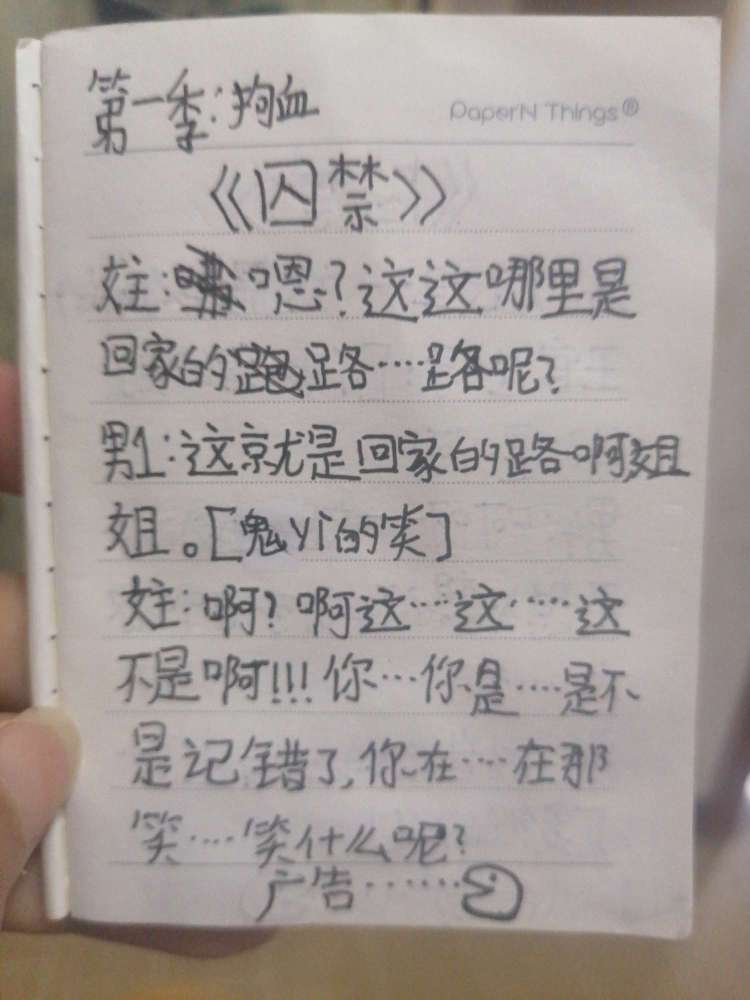 第一季：狗血
PaperN Things®
《囚禁》
女主：嗯？这这哪里是
回家的路····路呢？
男1：这就是回家的路啊姐
姐。[鬼yi的笑]
女主：啊？啊这····这·····这
不是啊!!!你···你是····是不
是记错了,你在····在那
笑····笑什么呢？
广告······